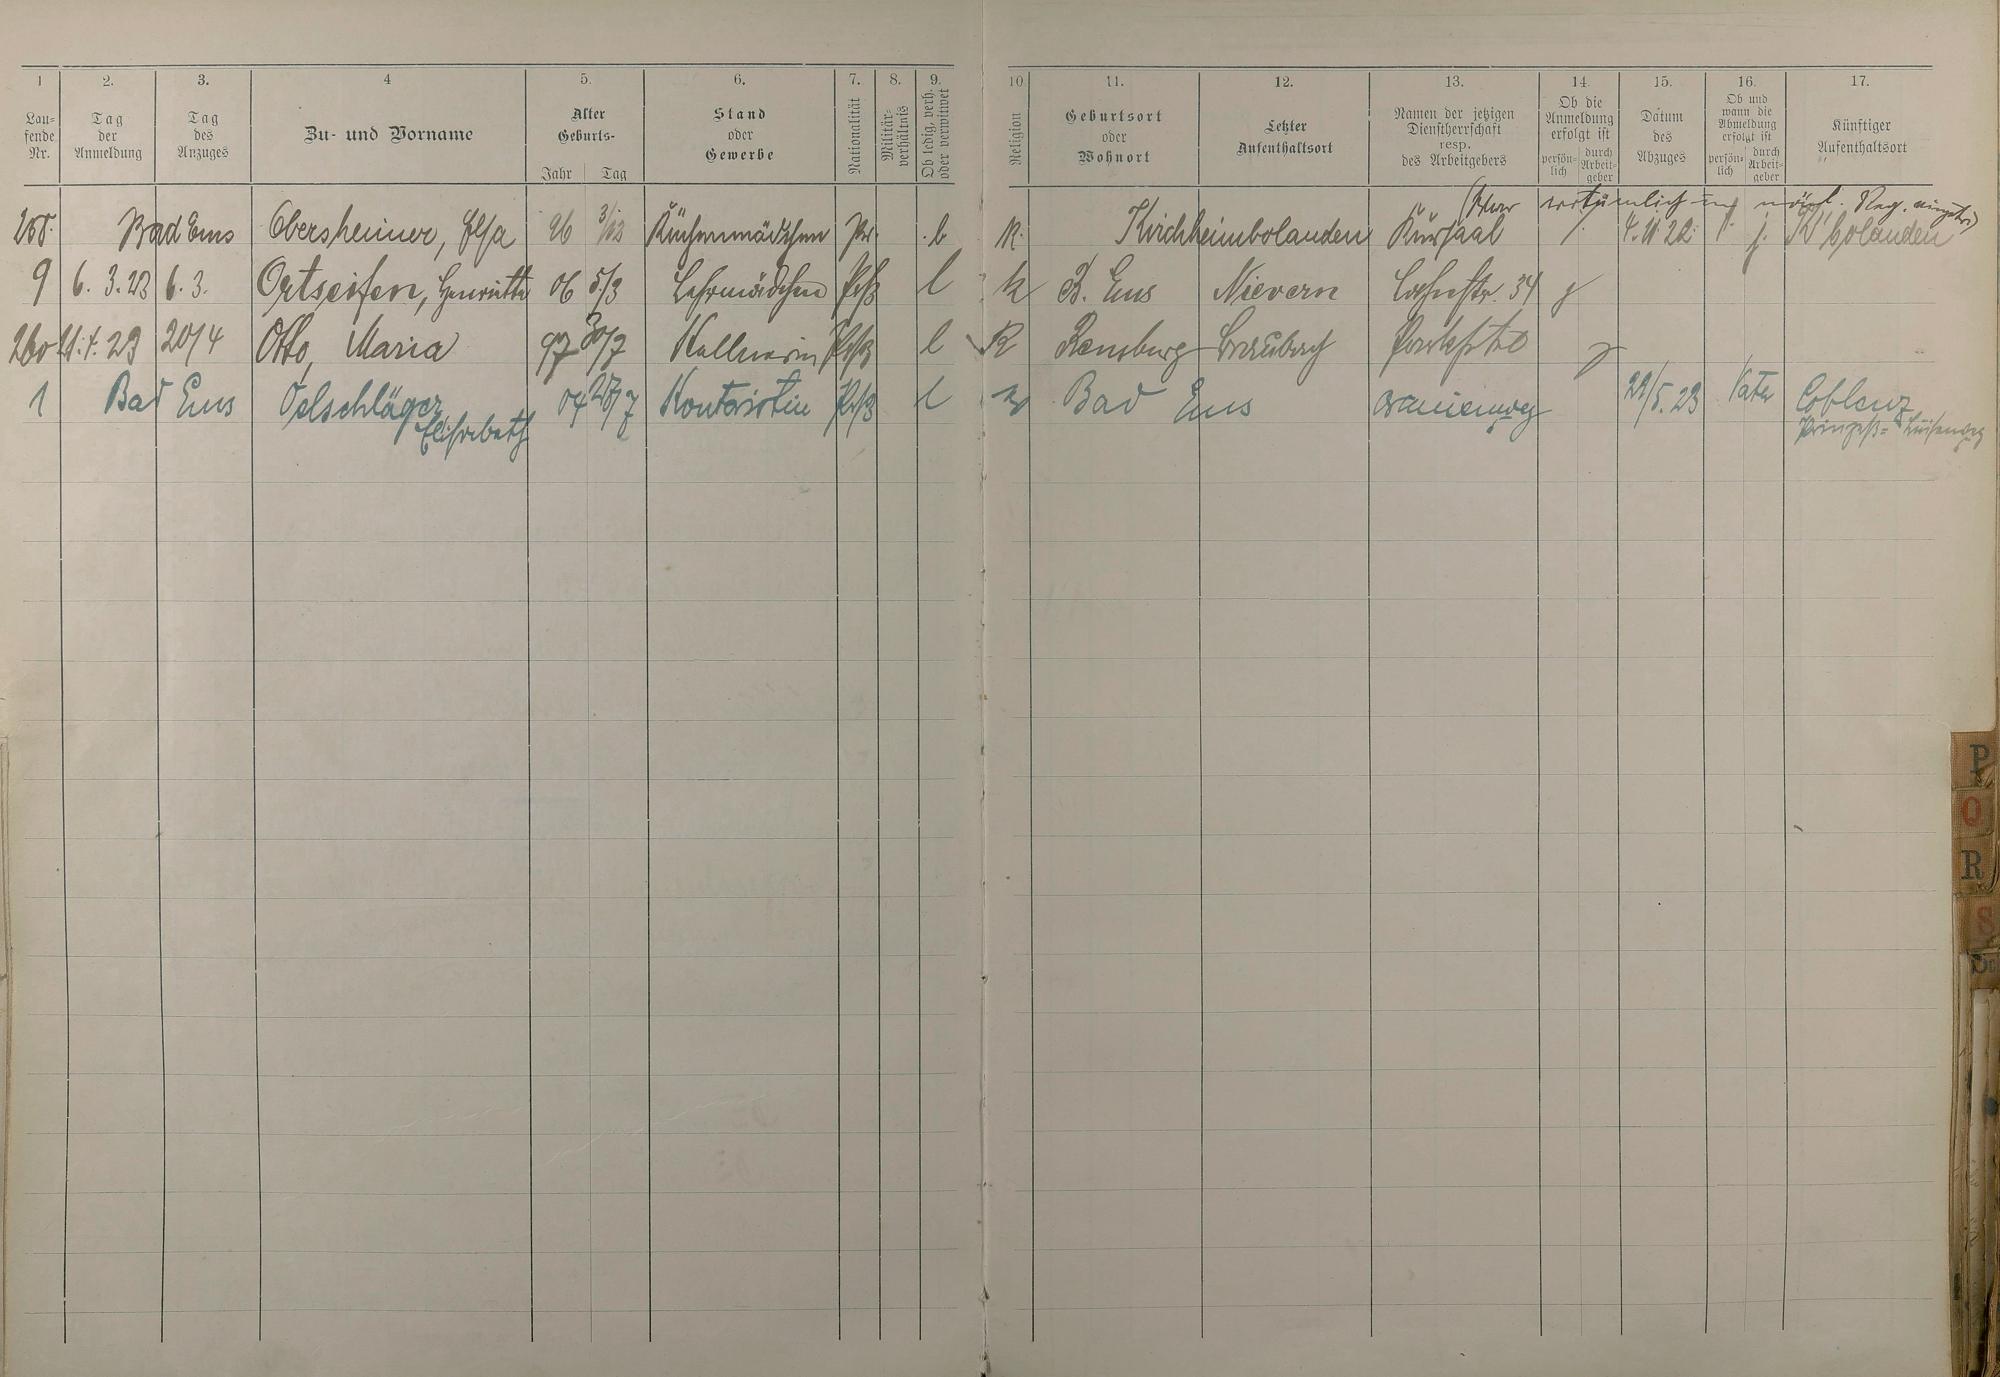 1 2. 3. 4 5. 6. 7. 8. 9. 10 11. 12. 13. 14. 15. 16. 17.
Lau-
fende
Nr.
Tag
der
Anmeldung
Tag
des
Anzuges
Zu- und Vorname
Alter
Geburts-
Jahr Tag
Stand
oder
Gewerbe
Nationalität
Militär-
verhältnis
Ob ledig, verh.
oder verwitwet
Religion
Geburtsort
oder
Wohnort
Letzter
Aufenthaltsort
Namen der jetzigen
Dienstherrschaft
resp.
des Arbeitgebers
Ob die
Anmeldung
erfolgt ist
persön-
lich
durch
Arbeit-
geber
Datum
des
Abzuges
Ob und
wann die
Abmeldung
erfolgt ist
persön-
lich
durch
Arbeit-
geber
Künftiger
Aufenthaltsort
(War irrtümlich im männl. Reg. eingetr.)
258. Bad Ems Obersheimer, Elsa 96 3/12 Küchenmädchen Pr. l. K. Kirchheimbolanden Kursaal 4.11.22. j. K'bolanden
9 6.3.23 6.3. Ortseifen, Henriette 06 5/3 Lehrmädchen Prß l k B. Ems Nievern Lahnstr. 34
260 21.4.23 20/4 Otto, Maria 97 30/7 Kellnerin Prß l K Rensburg Braubach Parkhotel
1 Bad Ems Oelschläger, 04 28/7 Kontoristin Prß l Bad Ems Oranienweg 22/5.23 Vater Coblenz
Elisabeth Prinzeß-Luisenweg
P
Q
R
S